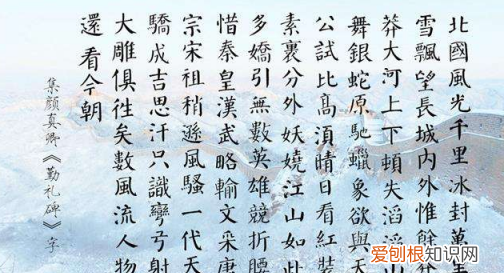 北國風光千里冰封萬
雪飄望長城內外惟餘
莽大河上下頓失滔
舞銀蛇原馳蠟象欲與天
公試比髙湏晴日看紅裝
素裹分外妖嬈江山如此
多嬌引無數英雄競折腰
惜秦皇漢武略輸文采唐
宗宋祖稍遜風騷一代天
驕成吉思汗只識彎弓射
大雕俱往矣數風流人物
還看今朝
集顏真卿《勤礼碑》字
爱刨根知识网